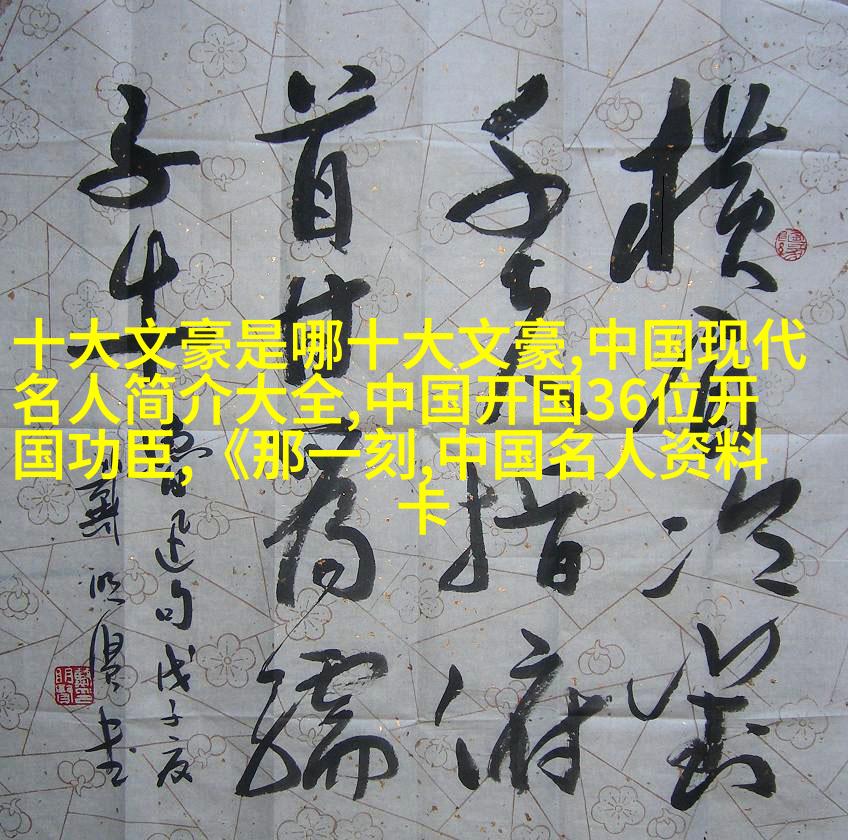 十大文豪是哪十大文豪,中国现代
名人简介大全,中国开国36位开
国功臣,《那一刻,中国名人资料
卡
横眉冷對
千夫指俯
首甘為孺
子牛
魯迅句戊子夏
戴明賢书